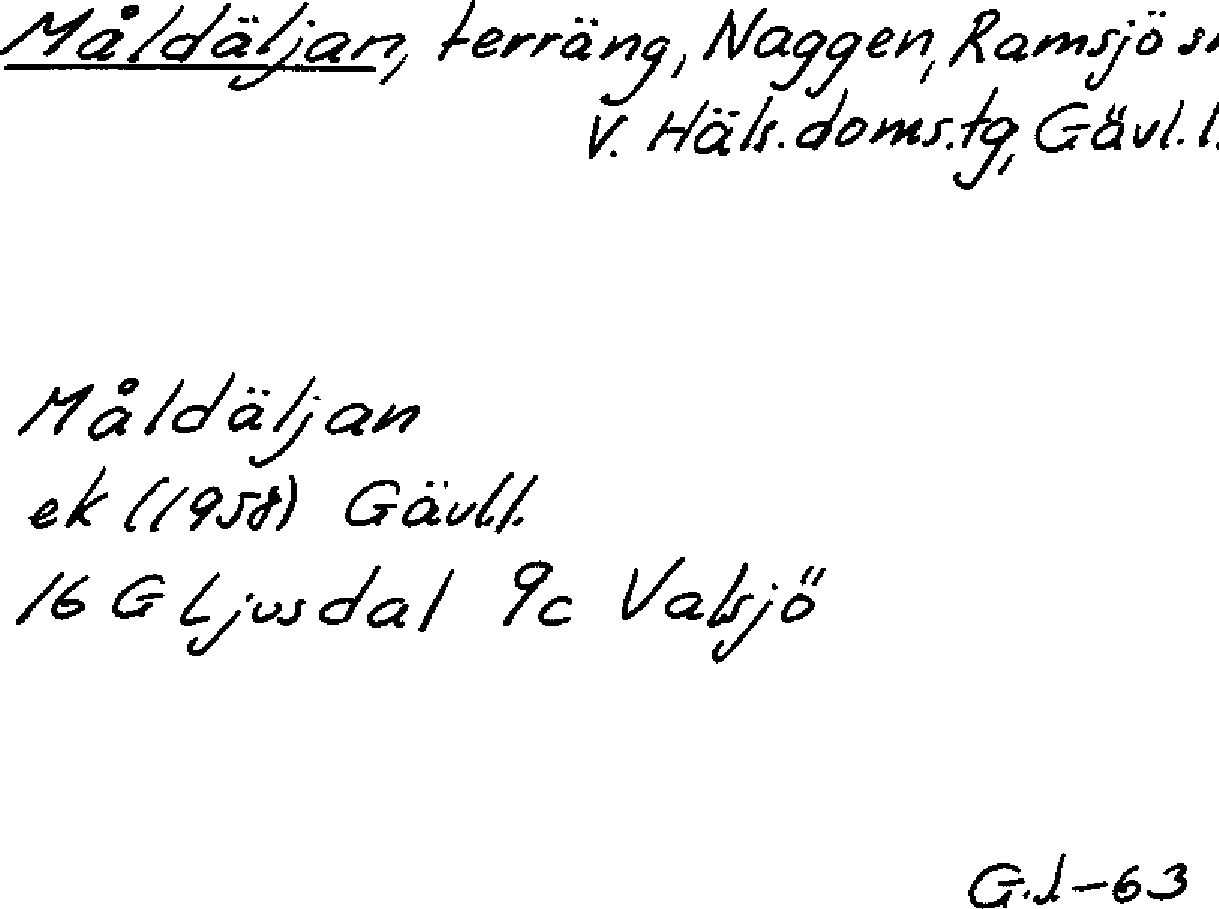 Måldäljan, terräng, Naggen, Ramsjö sn
V. Häls. doms.tg, Gävl. l.
Måldäljan
ek (1958) Gävl.l.
16 G Ljusdal 9c Valsjö
G.I-63